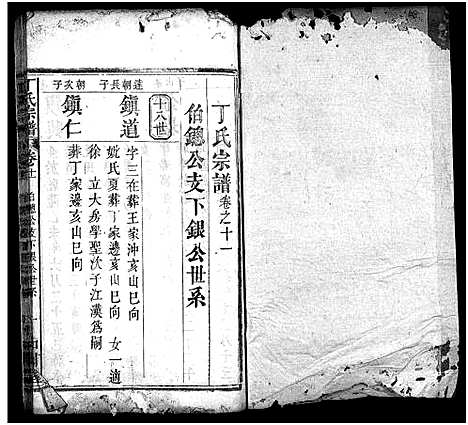 丁氏宗譜卷之十一
伯鏓公支下銀公世系
十八世
達朝長子
鎮道
字三在葬王家沖亥山巳向
妣氏夏葬丁家邊亥山巳向　女一適
徐　立大房學聖次子江漢為嗣
朝次子
鎮仁
葬丁家邊亥山巳向
丁氏宗譜
卷十一
伯鏓公支下銀公世系
一